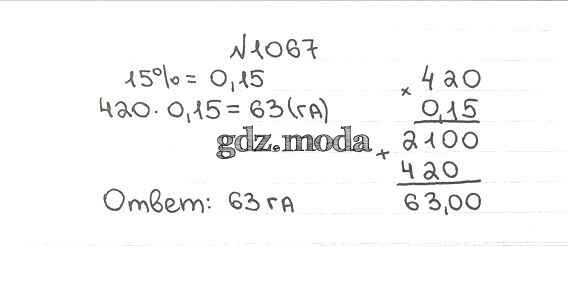 №1067
15% = 0,15
420 · 0,15 = 63 (га)
× 420
0,15
+ 2100
420
63,00
gdz.moda
Ответ: 63 га